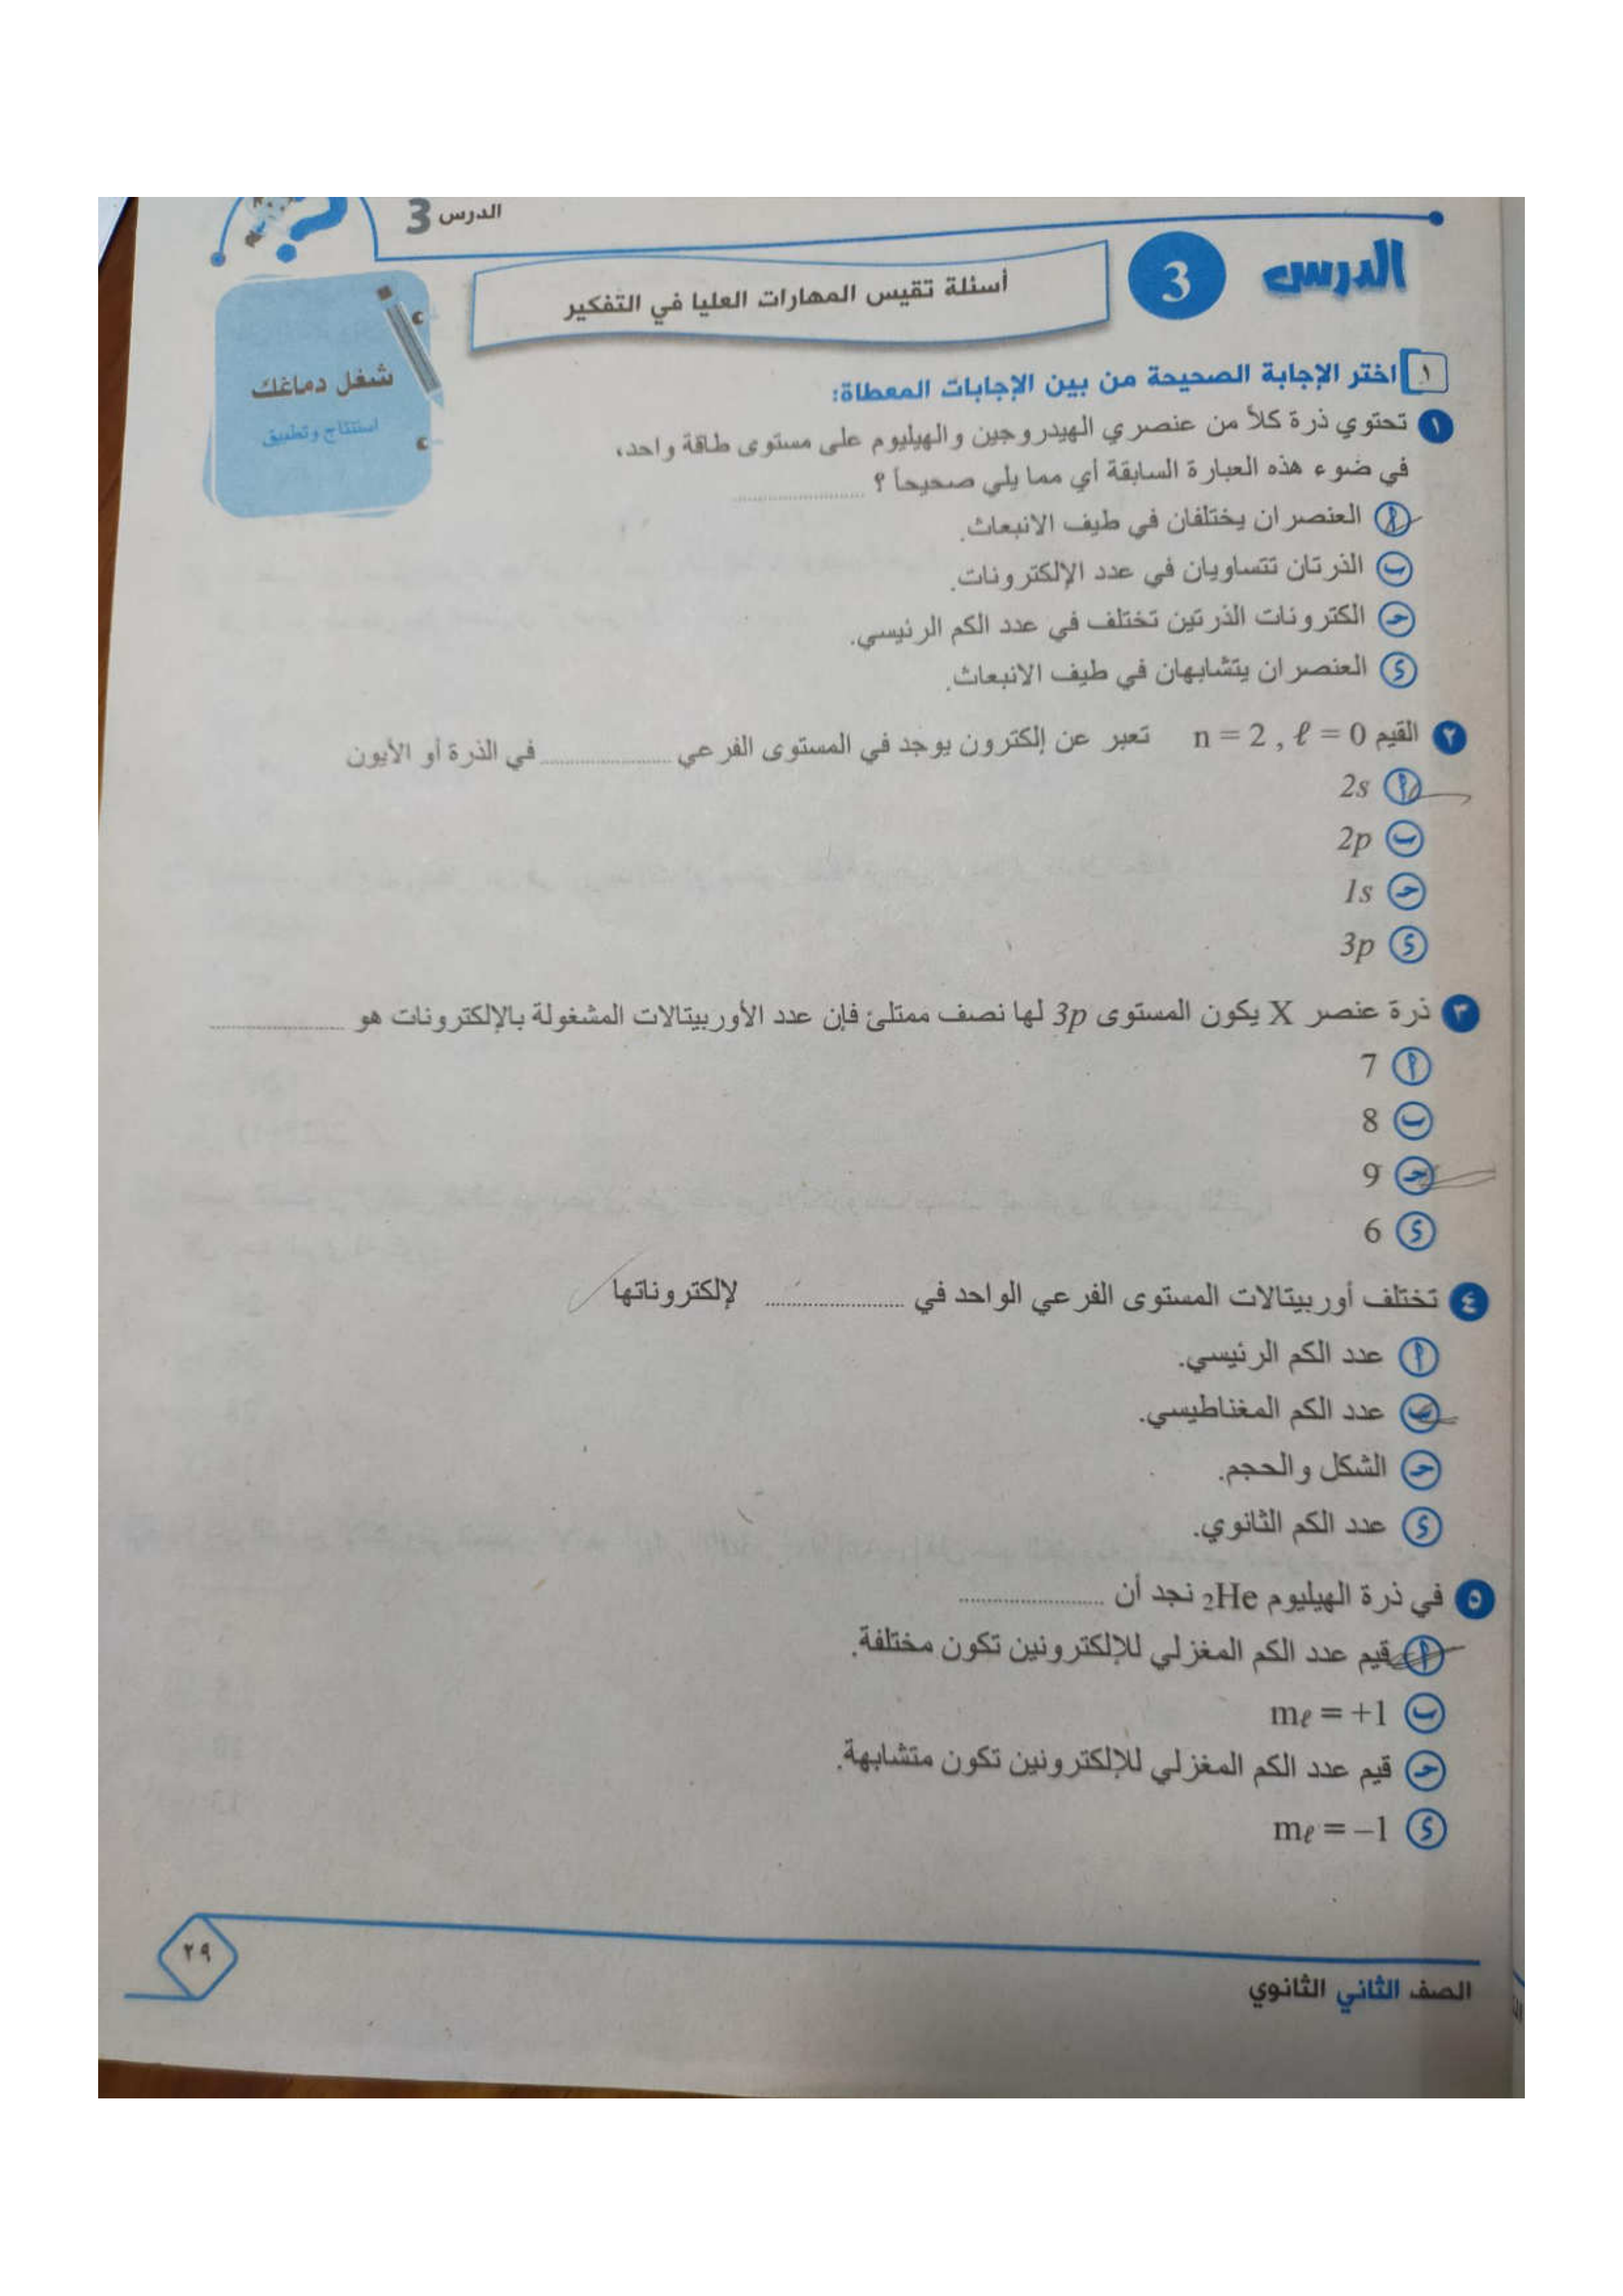 الدرس 3
الدرس 3
أسئلة تقيس المهارات العليا في التفكير
شغل دماغك
استنتاج وتطبيق
١ اختر الإجابة الصحيحة من بين الإجابات المعطاة:
١ تحتوي ذرة كلاً من عنصري الهيدروجين والهيليوم على مستوى طاقة واحد،
في ضوء هذه العبارة السابقة أي مما يلي صحيحاً ؟ ....................
أ العنصران يختلفان في طيف الانبعاث.
ب الذرتان تتساويان في عدد الإلكترونات.
ج الكترونات الذرتين تختلف في عدد الكم الرئيسي.
د العنصران يتشابهان في طيف الانبعاث.
٢ القيم n = 2 , ℓ = 0 تعبر عن إلكترون يوجد في المستوى الفرعي .................... في الذرة أو الأيون
أ 2s
ب 2p
ج 1s
د 3p
٣ ذرة عنصر X يكون المستوى 3p لها نصف ممتلئ فإن عدد الأوربيتالات المشغولة بالإلكترونات هو ....................
أ 7
ب 8
ج 9
د 6
٤ تختلف أوربيتالات المستوى الفرعي الواحد في .................... لإلكتروناتها
أ عدد الكم الرئيسي.
ب عدد الكم المغناطيسي.
ج الشكل والحجم.
د عدد الكم الثانوي.
٥ في ذرة الهيليوم ₂He نجد أن ....................
أ قيم عدد الكم المغزلي للإلكترونين تكون مختلفة.
ب mℓ = +1
ج قيم عدد الكم المغزلي للإلكترونين تكون متشابهة.
د mℓ = –1
٢٩
الصف الثاني الثانوي